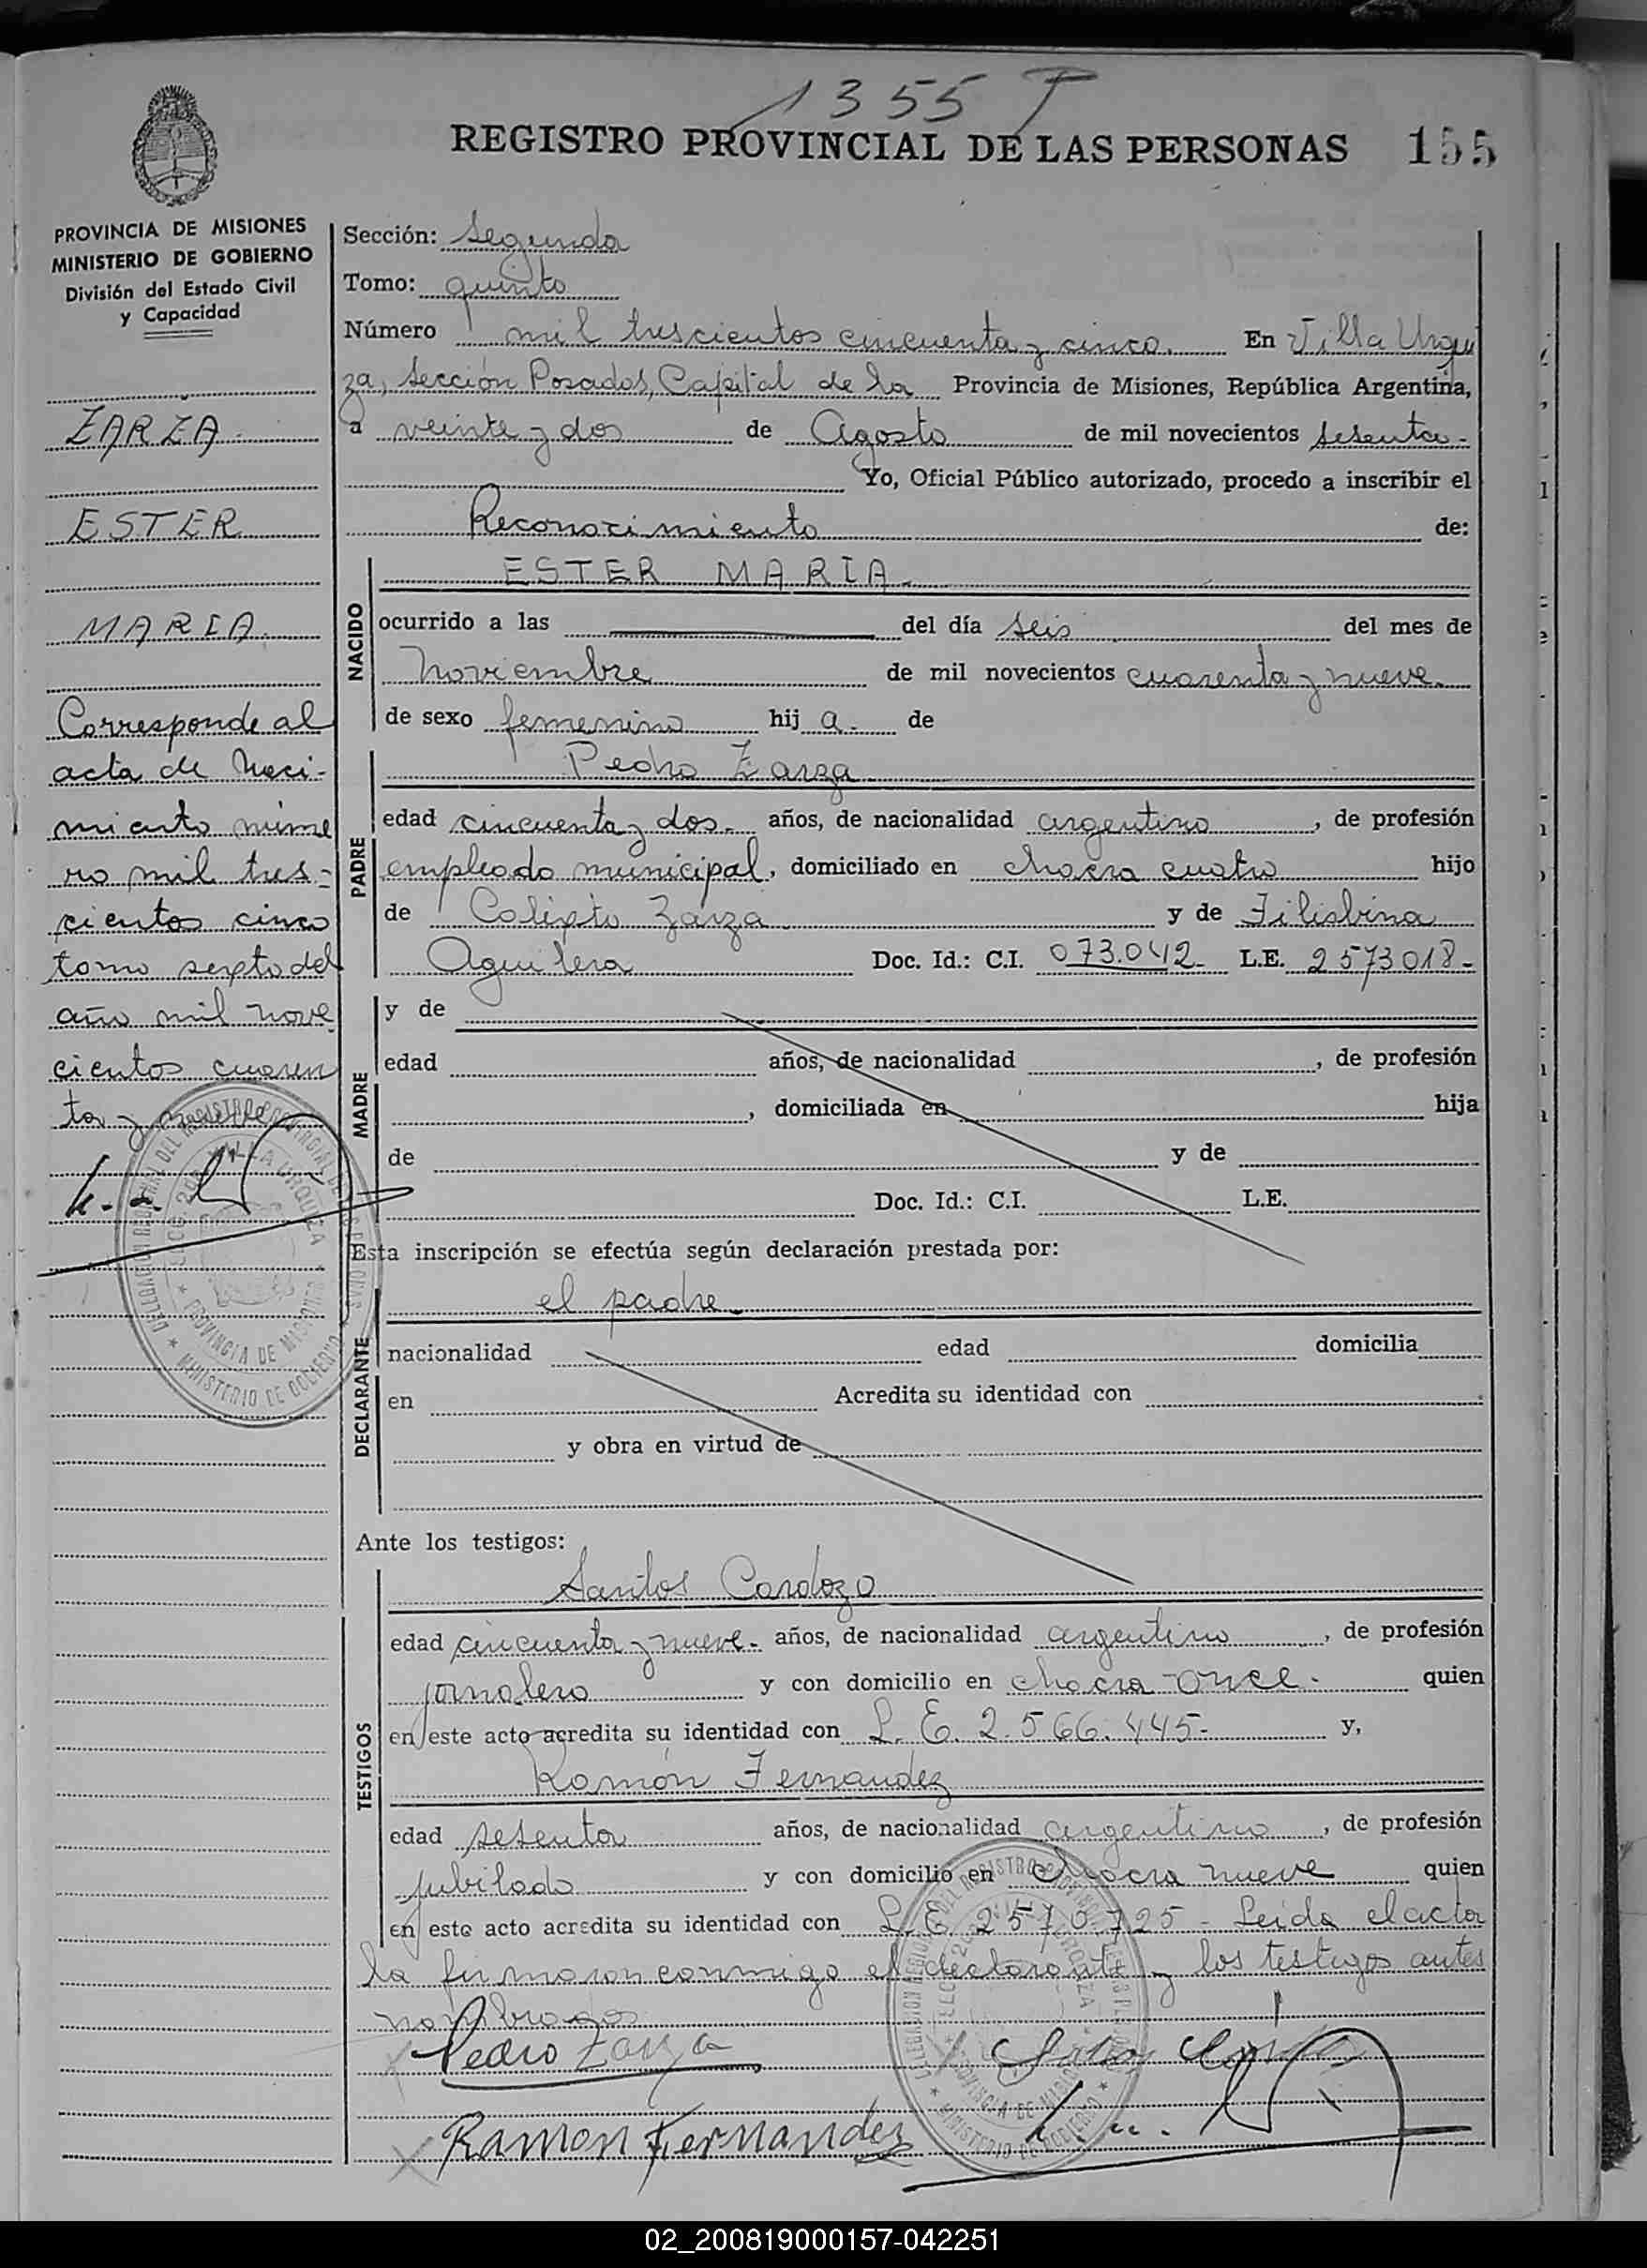 1355 T
REGISTRO PROVINCIAL DE LAS PERSONAS 155
PROVINCIA DE MISIONES
MINISTERIO DE GOBIERNO
División del Estado Civil
y Capacidad
ZARZA
ESTER
MARIA
Corresponde al
acta de Naci-
miento núme
ro mil tres-
cientos cinco
tomo sexto del
año mil nove
cientos cuaren
ta y nueve
Sección: Segunda
Tomo: quinto
Número mil trescientos cincuenta y cinco. En Villa Urqui
za, Sección Posadas, Capital de la Provincia de Misiones, República Argentina,
a veinte y dos de Agosto de mil novecientos setenta.-
Yo, Oficial Público autorizado, procedo a inscribir el
Reconocimiento de:
NACIDO
ESTER MARIA.
ocurrido a las del día seis del mes de
Noviembre de mil novecientos cuarenta y nueve.
de sexo femenino hij a.- de
PADRE
Pedro Zarza
edad cincuenta y dos.- años, de nacionalidad argentino, de profesión
empleado municipal, domiciliado en chacra cuatro hijo
de Calixto Zarza y de Filisbina
Aguilera Doc. Id.: C.I. 073.042- L.E. 2573018-
MADRE
y de
edad años, de nacionalidad , de profesión
, domiciliada en hija
de y de
Doc. Id.: C.I. L.E.
Esta inscripción se efectúa según declaración prestada por:
DECLARANTE
el padre
nacionalidad edad domicilia
en Acredita su identidad con
y obra en virtud de
Ante los testigos:
TESTIGOS
Santos Cardozo
edad cincuenta y nueve.- años, de nacionalidad argentino, de profesión
jornalero y con domicilio en chacra once.- quien
en este acto acredita su identidad con L.E. 2.566.445- y,
Ramón Fernandez
edad setenta años, de nacionalidad argentino, de profesión
jubilado y con domicilio en chacra nueve quien
en este acto acredita su identidad con L.E. - Leida el acta
la firmaron conmigo el declarante y los testigos antes
nombrados
Pedro Zarza
Ramon Fernandez
DELEGACION REGIONAL DEL REGISTRO PROVINCIAL DE LAS PERSONAS
VILLA URQUIZA
PROVINCIA DE MISIONES
MINISTERIO DE GOBIERNO
02_200819000157-042251